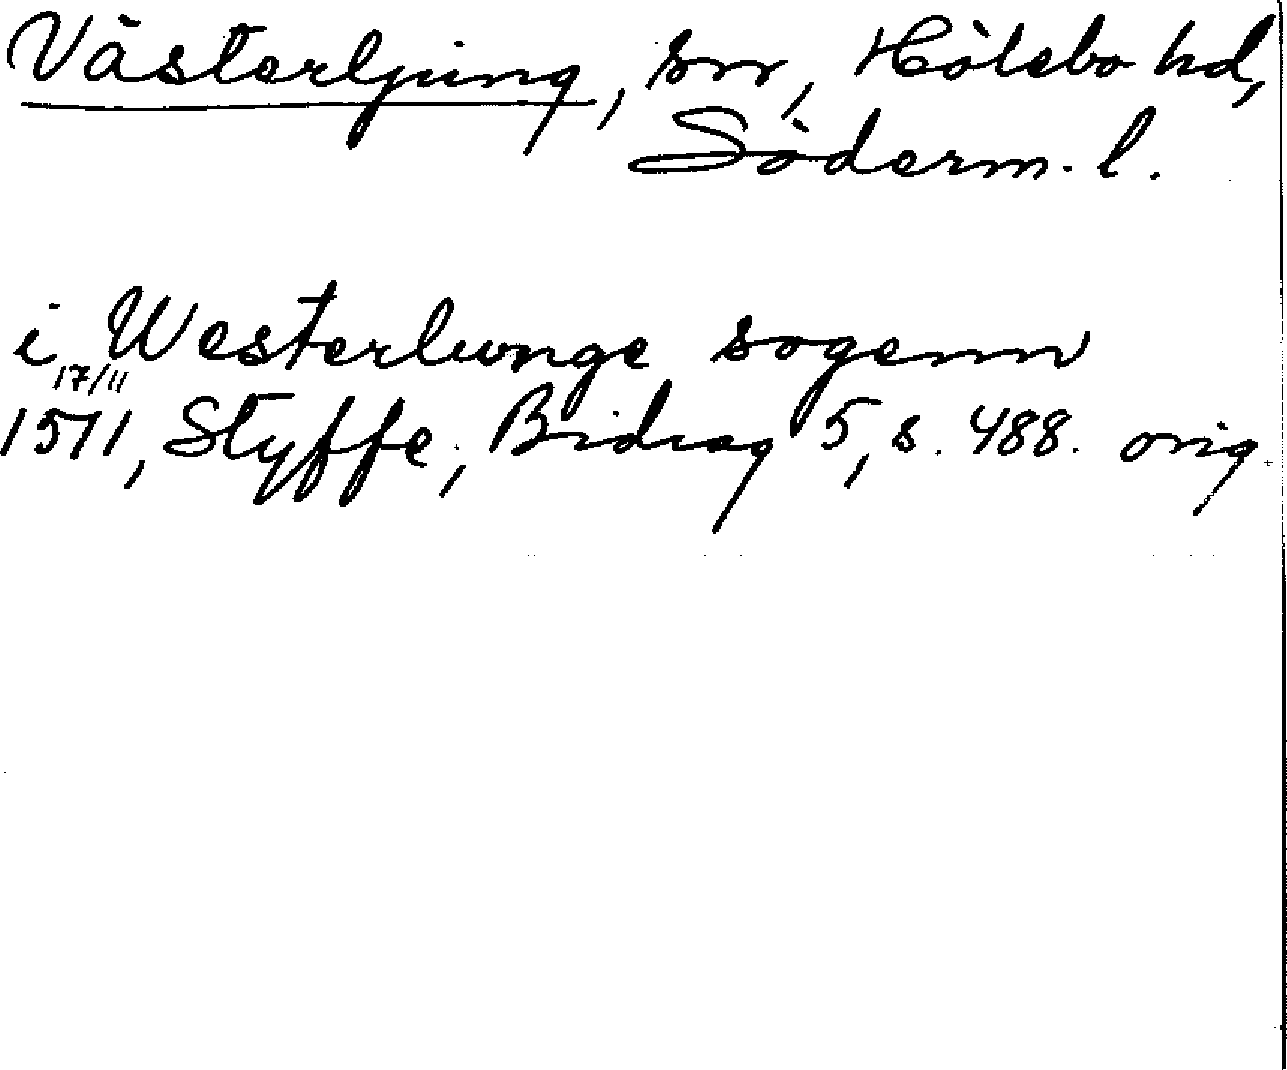 Västerljung, sn, Hölebo hd,
Söderm. l.
i Westerlunge sogenn
17/11
1511, Styffe, Bidrag 5, s. 488. orig.